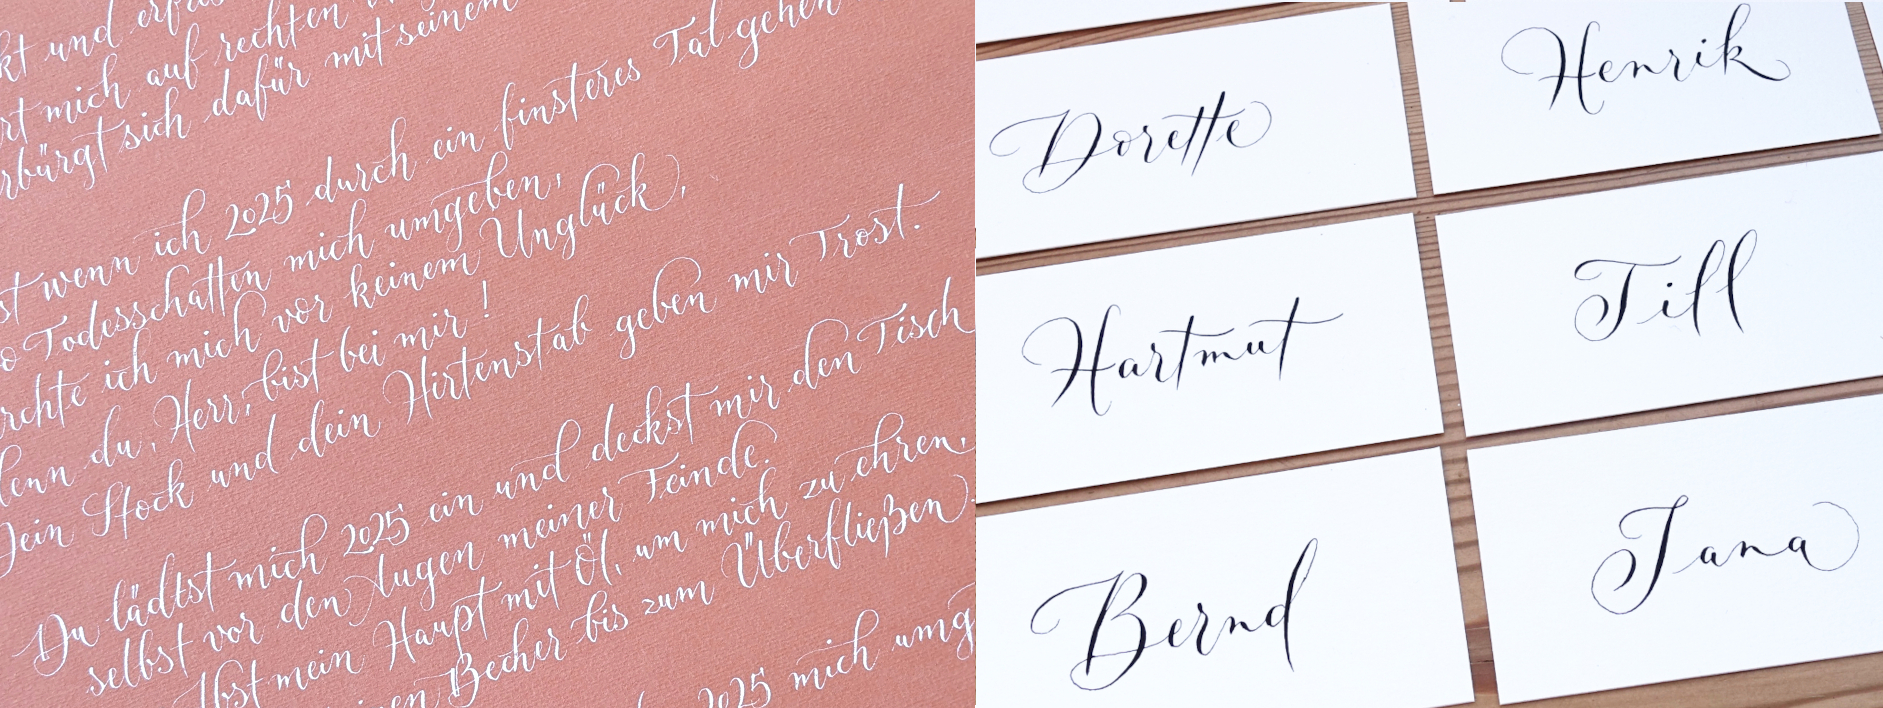 und
mich auf rechten
sich dafür mit seinem
wenn ich 2025 durch ein finsteres Tal gehen
Todesschatten mich umgeben,
ich mich vor keinem Unglück,
du, Herr, bist bei mir!
Dein Stock und dein Hirtenstab geben mir Trost.
Du lädtst mich 2025 ein und deckst mir den Tisch
selbst vor den Augen meiner Feinde.
mein Haupt mit Öl, um mich zu ehren,
Becher bis zum Überfließen
2025 mich
Dorette
Henrik
Hartmut
Till
Bernd
Jana